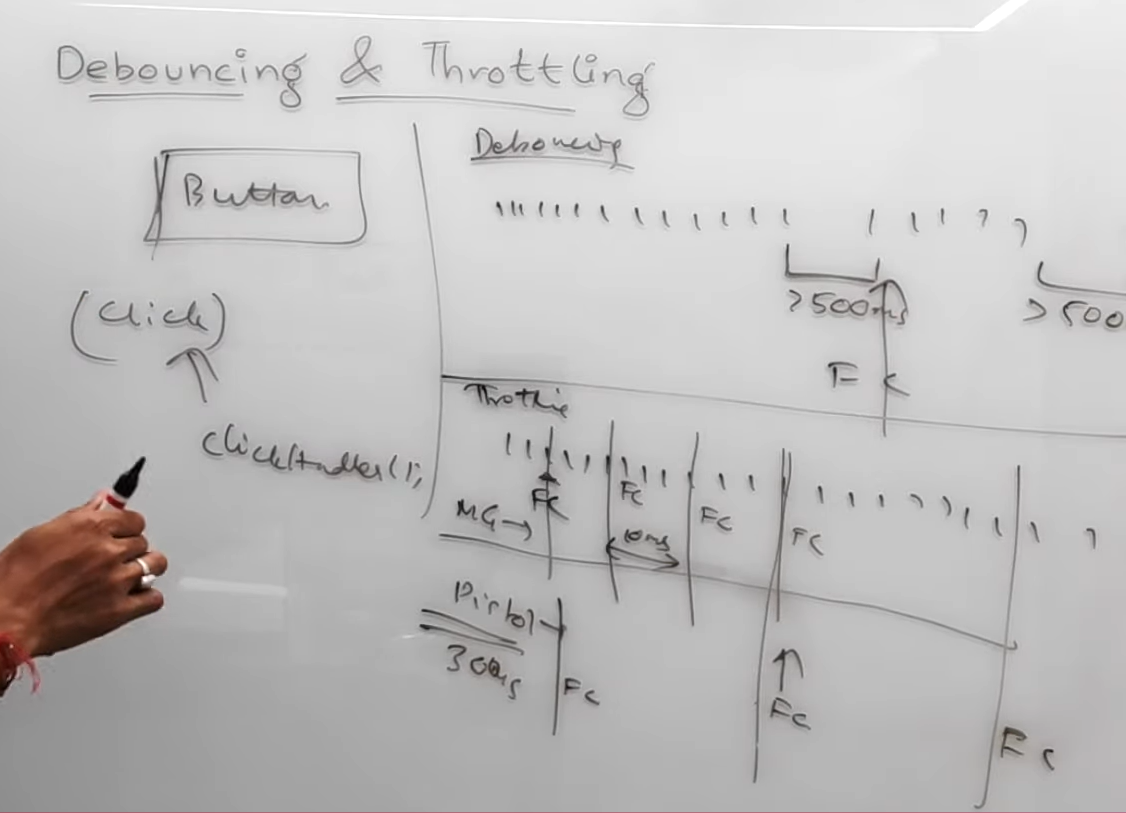 Debouncing & Throttling
Button
(Click)
clickHandler();
Debouncing
>500ms
>500
FC
Throttle
FC
FC
FC
FC
MG →
10ms
Pistol
300ms
FC
FC
FC